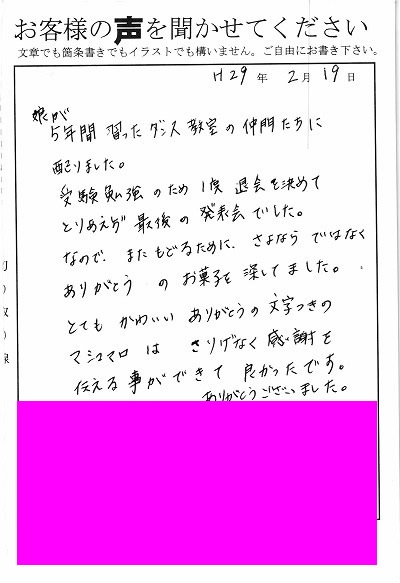 お客様の声を聞かせてください
文章でも箇条書きでもイラストでも構いません。ご自由にお書き下さい。
H29年 2月19日
娘が
5年間 習ったダンス教室の仲間たちに
配りました。
受験勉強のため 1度 退会を決めて
とりあえず 最後の 発表会でした。
なので、またもどるために、さよなら ではなく
ありがとう のお菓子を 探してました。
とても かわいい ありがとうの文字つきの
マシュマロ は さりげなく 感謝を
伝える 事ができて 良かったです。
ありがとうございました。